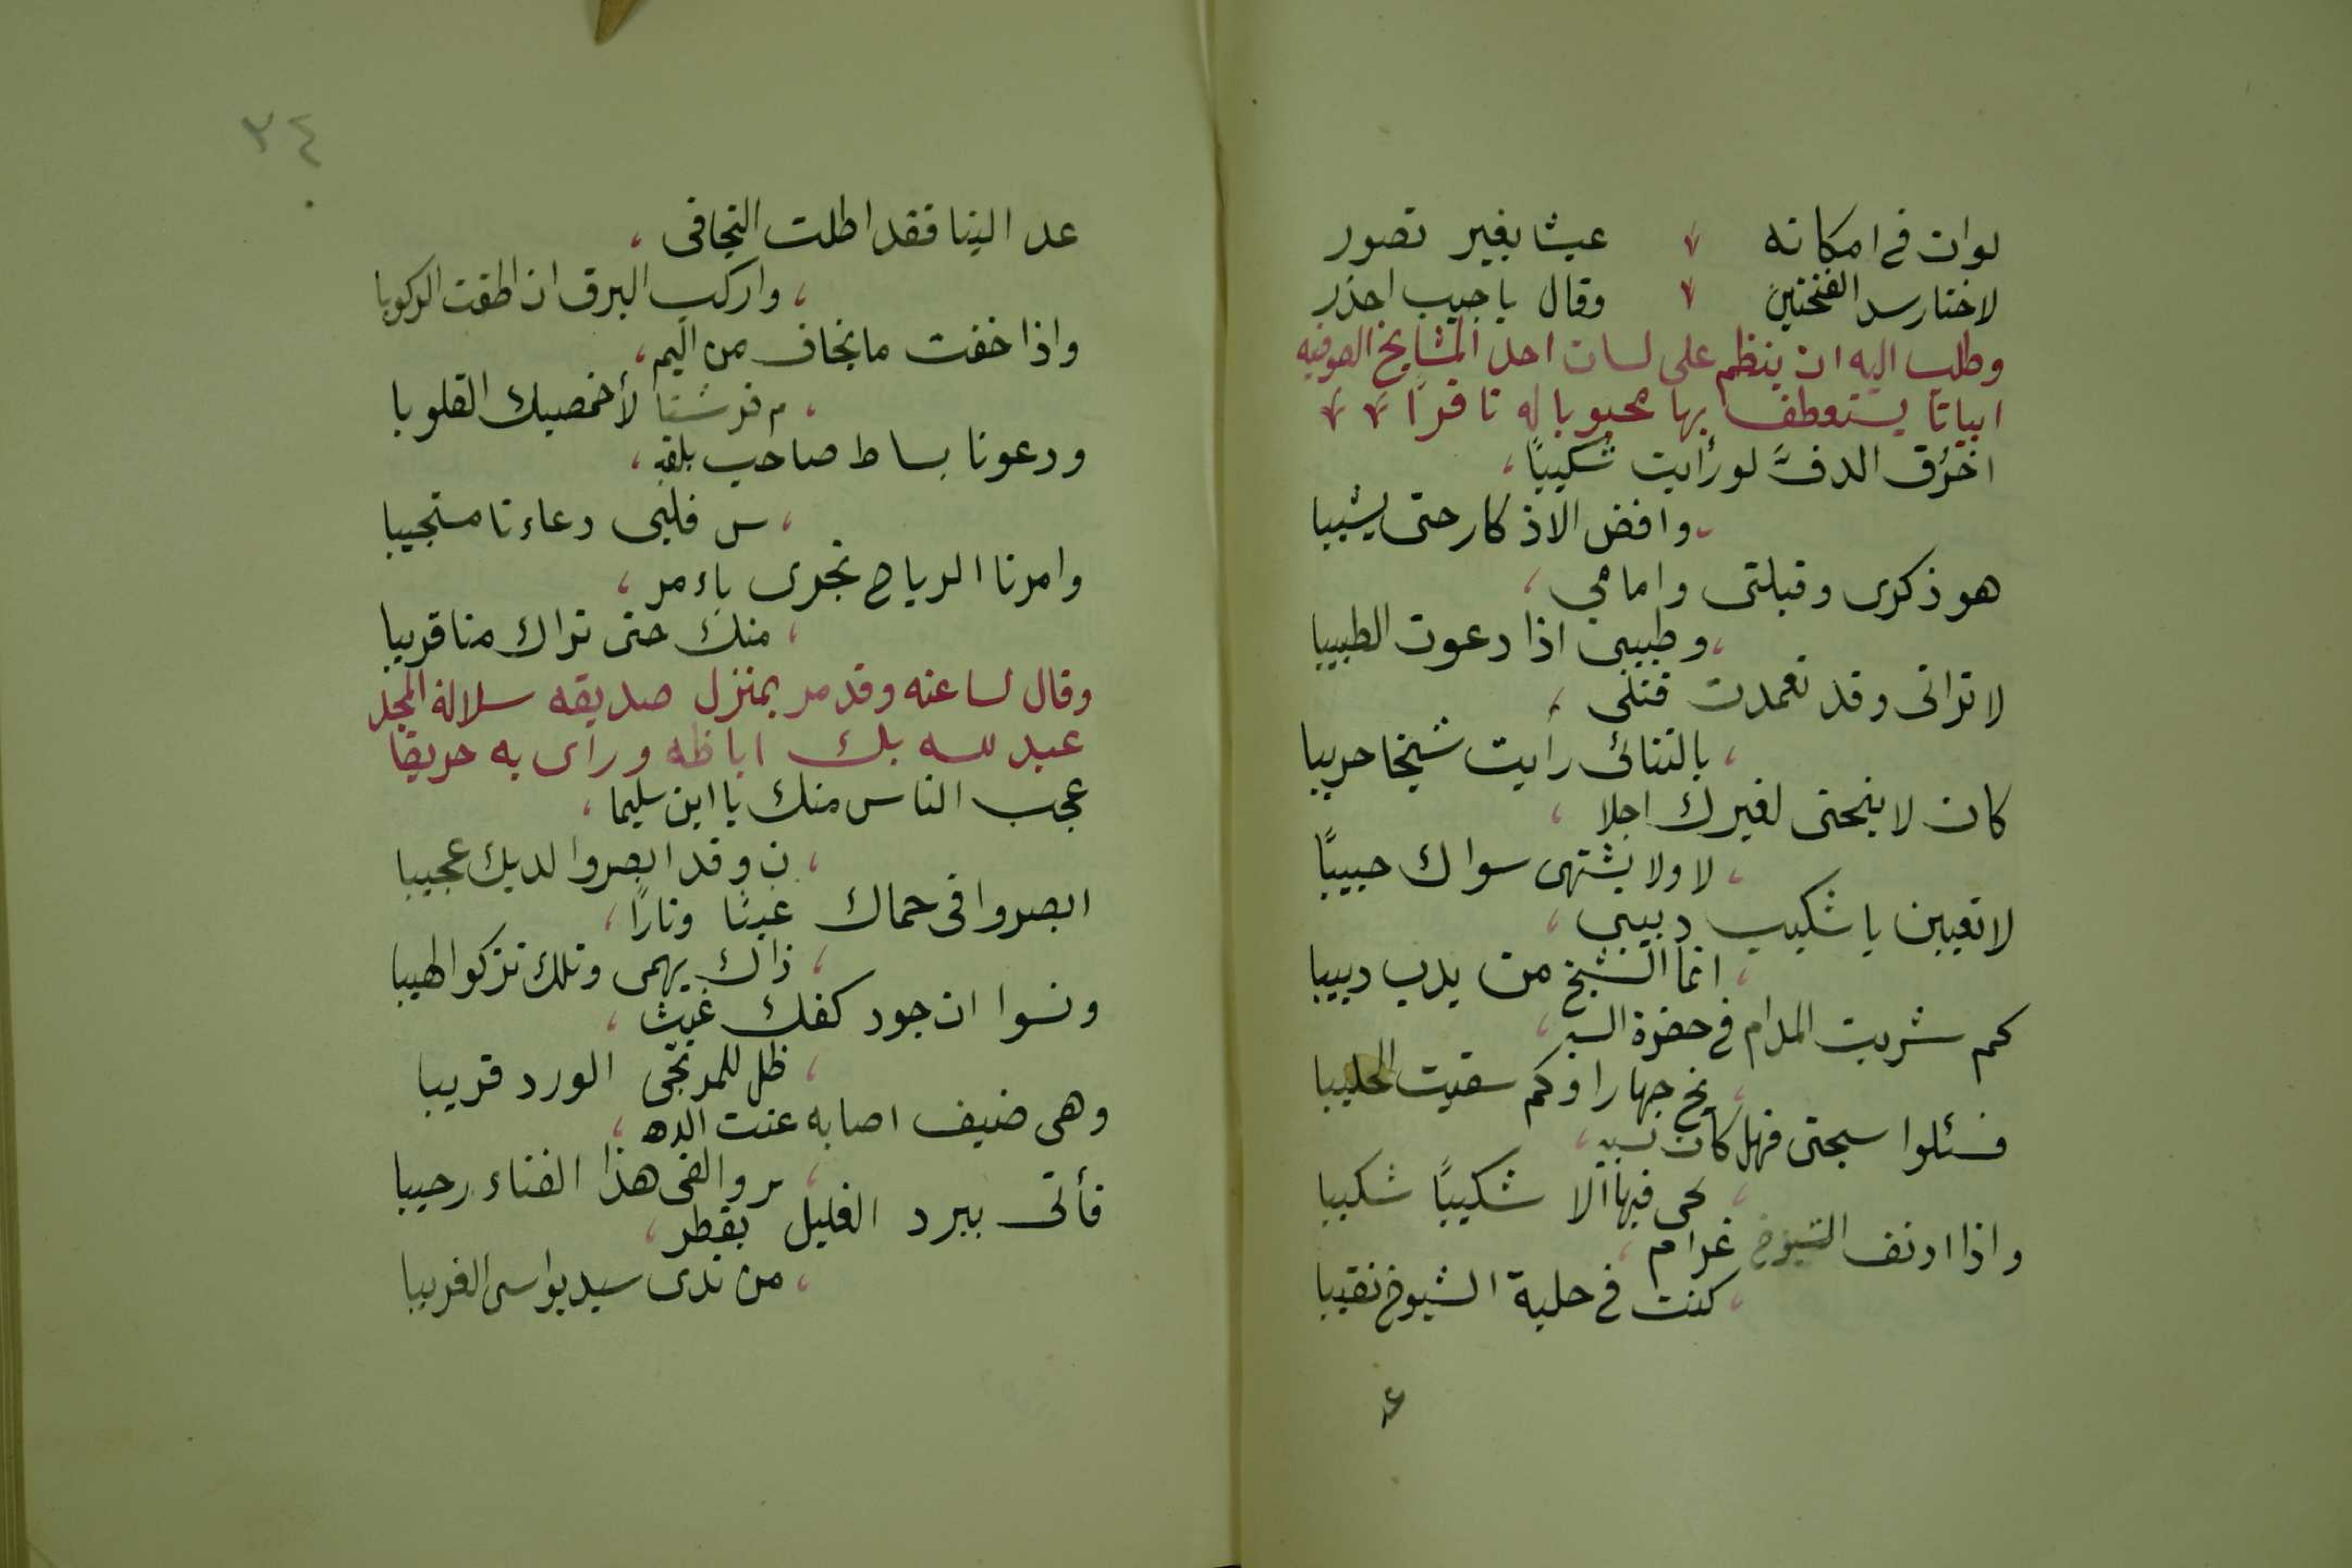 لوان فى امكانه عيشا بغير تصور
لاختار سد الفتحتين وقال يا جيب احذر
وطلب اليه ان ينظم على لسان احد المشايخ الصوفيه
ابياتا يستعطف بها محبوبا له نافرًا
اخرُق الدفَّ لو رأيت شكيبًا
وافض الاذكار حتى يشيبا
هو ذكرى وقبلتى وامامي
وطبيبى اذا دعوت الطبيبا
لا ترانى وقد تعمدت قتلى
بالتنائى رأيت شيخا حريبا
كان لا ينحنى لغيرك اجلا
لا ولا يشتهى سواك حبيبًا
لا تعيبن يا شكيب دبيبى
انما الشيخ من يدب دبيبا
كم شربت المدام فى حضرة الشيـ
ـخ جهارا وكم سقيت الحليبا
فسئلوا سبحتى فهل كان تسبيـ
ـحى فيها الا شكيبًا شكيبا
واذا ادنف الشيوخ غرام
كنت فى حلبة الشيوخ نقيبا
٢٤
عد الينا فقد اطلت التجافى
واركب البرق ان اطقت الركوبا
واذا خفت ما يخاف من اليم
م فرشنا لأخمصيك القلوبا
ودعونا بساط صاحب بلقيـ
س فلبى دعاءنا مستجيبا
وامرنا الرياح تجرى بأمر
منك حتى نراك منا قريبا
وقال لساعته وقد مر بمنزل صديقه سلالة المجد
عبد لله بك اباظه ورأى به حريقا
عجب الناس منك يا ابن سليما
ن وقد ابصروا لديك عجيبا
ابصروا فى حماك غيثا ونارًا
ذاك يهمى وتلك تزكوا لهيبا
ونسوا ان جود كفك غيث
ظل للمرتجى الورد قريبا
وهى ضيف اصابه عنت الدهـ
ر والفى هذا الفناء رحيبا
فأتى يبرد الغليل بقطر
من ندى سيد يواسى الغريبا